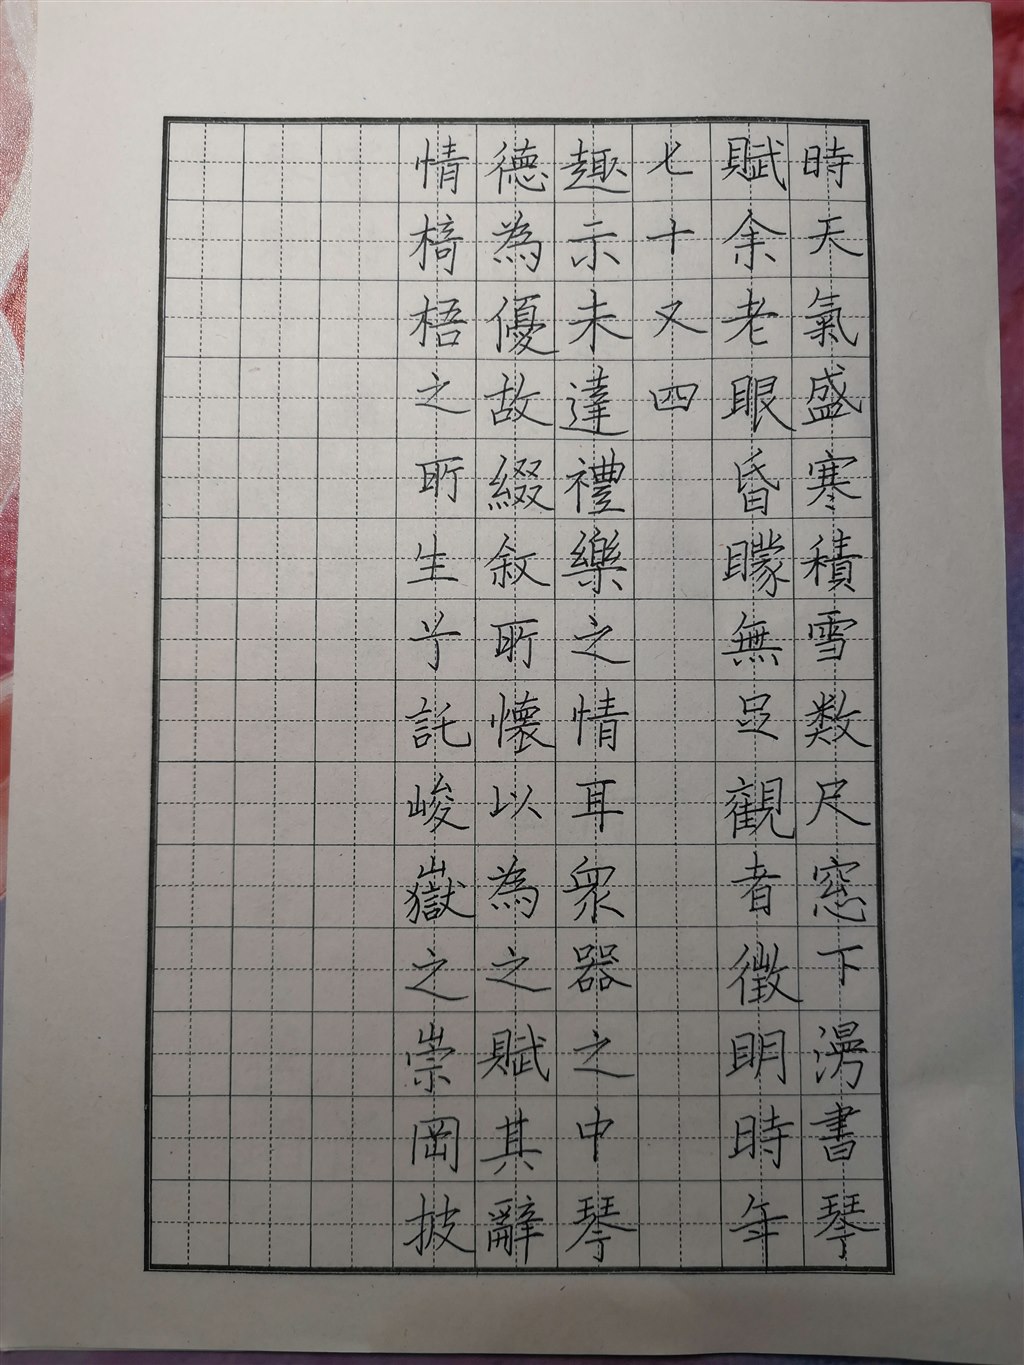 時天氣盛寒積雪数尺窓下漫書琴
賦余老眼昏矇無足觀者徵明時年
七十又四
趣示未達禮樂之情耳衆器之中琴
德為優故綴叙所懷以為之賦其辭
情椅梧之所生兮託峻嶽之崇岡披